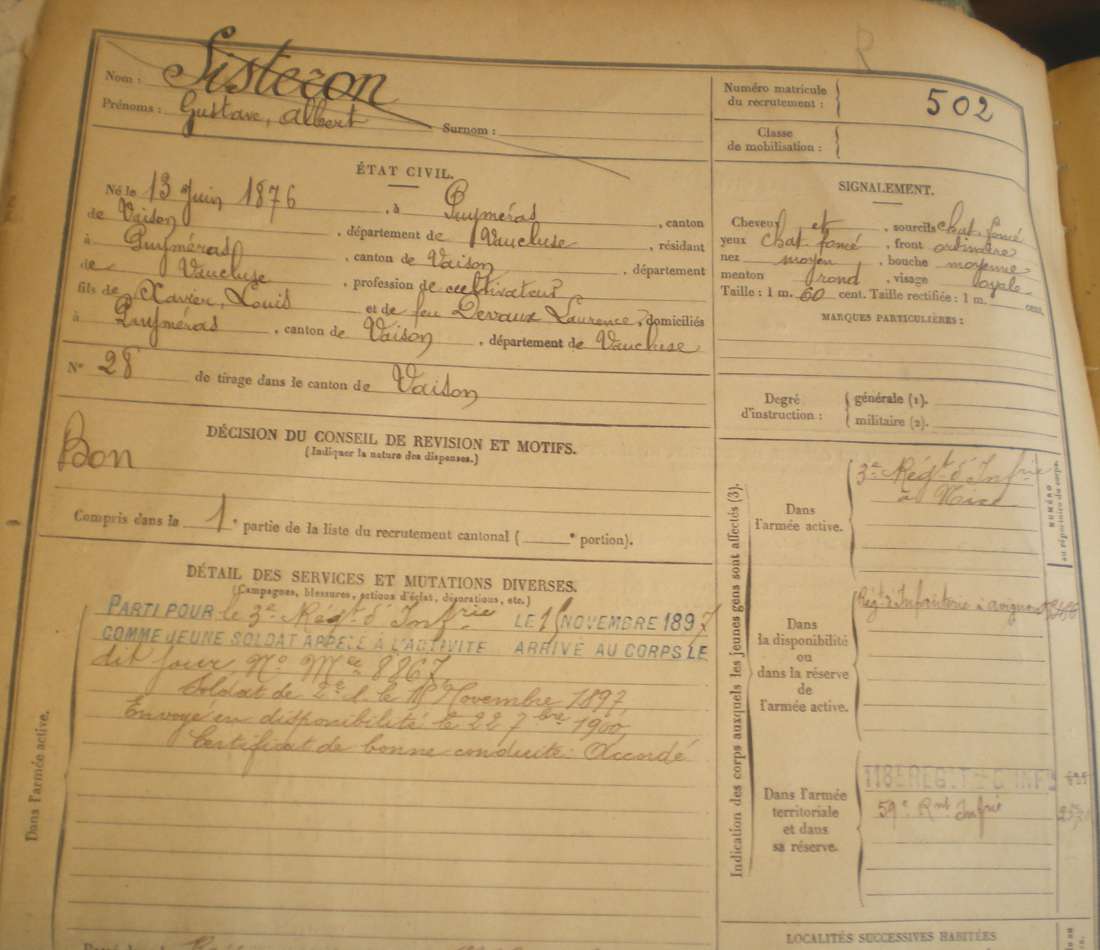 Nom : Sisteron
Prénoms : Gustave, Albert Surnom :
ÉTAT CIVIL.
Né le 13 Juin 1876, à Puyméras, canton
de Vaison, département de Vaucluse, résidant
à Puyméras, canton de Vaison, département
de Vaucluse, profession de cultivateur
fils de Xavier, Louis et de feu Devaux Laurence, domiciliés
à Puyméras, canton de Vaison, département de Vaucluse
N° 28 de tirage dans le canton de Vaison
DÉCISION DU CONSEIL DE REVISION ET MOTIFS.
(Indiquer la nature des dispenses.)
Bon
Compris dans la 1e partie de la liste du recrutement cantonal ( e portion).
DÉTAIL DES SERVICES ET MUTATIONS DIVERSES.
(Campagnes, blessures, actions d'éclat, décorations, etc.)
PARTI POUR le 3e Régt d'Infrie LE NOVEMBRE 1897
COMME JEUNE SOLDAT APPELÉ À L'ACTIVITÉ ARRIVÉ AU CORPS LE
dit jour No Mle 8867
Soldat de 2e cl le Novembre 1897
Envoyé en disponibilité le 22 7bre 1900
Certificat de bonne conduite : Accordé
Dans l'armée active.
R
Numéro matricule
du recrutement : 502
Classe
de mobilisation :
SIGNALEMENT.
Cheveux et, sourcils chat. foncé
yeux chat foncé, front ordinaire
nez moyen, bouche moyenne
menton rond, visage ovale
Taille : 1 m. 60 cent. Taille rectifiée : 1 m. cent.
MARQUES PARTICULIÈRES :
Degré
d'instruction :
générale (1).
militaire (2).
Indication des corps auxquels les jeunes gens sont affectés (3).
NUMÉRO
au répertoire du corps.
Dans
l'armée active.
3e Régt d'Infrie
à Nice
Dans
la disponibilité
ou
dans la réserve
de
l'armée active.
Régt d'Infanterie à Avignon
Dans l'armée
territoriale
et dans
sa réserve.
118e RÉGt D'INFie
59e Rmt Infrie
LOCALITÉS SUCCESSIVES HABITÉES